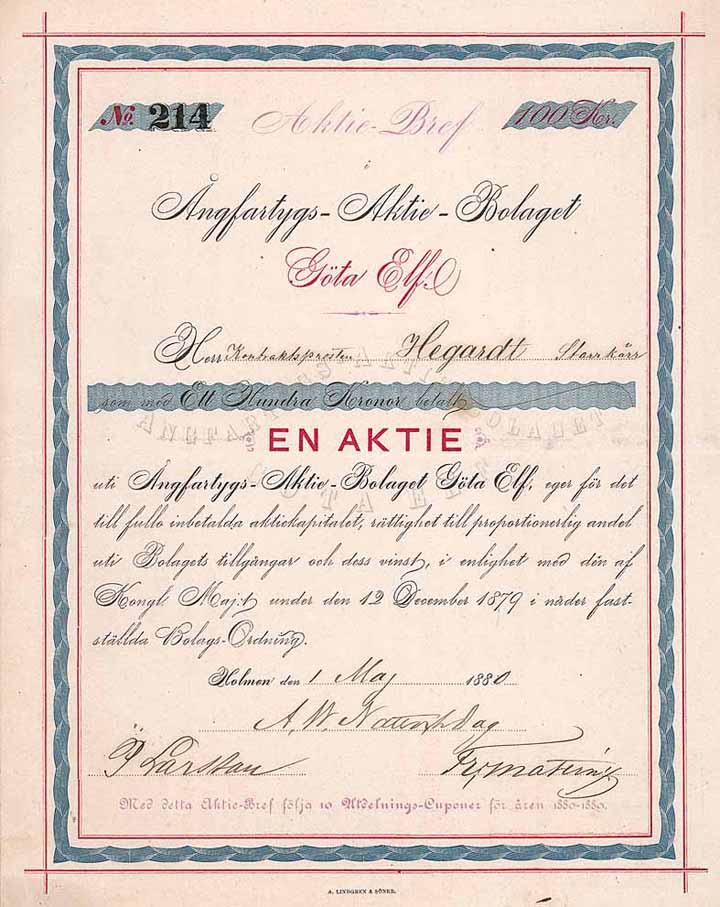 No. 214 Aktie-Bref 100 Kr.
i
Ångfartygs-Aktie-Bolaget
Göta Elf.
Herr Kontraktsprosten Hegardt Starrkärr
som med Ett Hundra Kronor betalt
ÅNGFARTYGS AKTIE BOLAGET
GÖTA ELF
EN AKTIE
uti Ångfartygs-Aktie-Bolaget Göta Elf, eger för det
till fullo inbetalda aktiekapitalet, rättighet till proportionerlig andel
uti Bolagets tillgångar och dess vinst, i enlighet med den af
Kongl. Maj:t under den 12 December 1879 i nåder fast-
ställda Bolags-Ordning.
Holmen den 1 Maj 1880
A. W. Natt och Dag
P Larsson
Med detta Aktie-Bref följa 10 Utdelnings-Cuponer för åren 1880-1889.
A. LINDGREN & SÖNER.